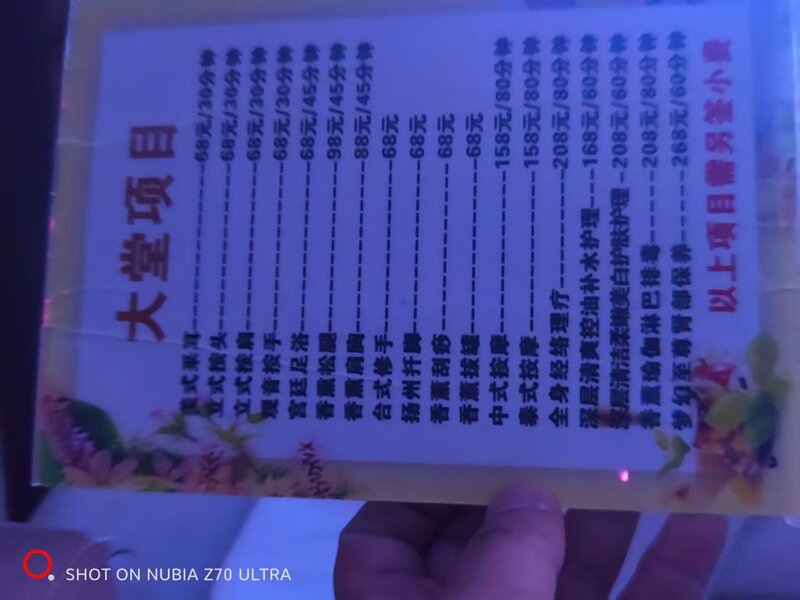 大堂项目
式采耳----------------68元/30分钟
立式按头----------------68元/30分钟
立式按肩----------------68元/30分钟
观音按手----------------68元/30分钟
宫廷足浴----------------68元/45分钟
香薰松腿----------------98元/45分钟
香薰肩胸----------------88元/45分钟
台式修手----------------68元
扬州扦脚----------------68元
香薰刮痧----------------68元
香薰拔罐----------------68元
中式按摩----------------158元/80分钟
泰式按摩----------------158元/80分钟
全身经络理疗------------208元/80分钟
深层清爽控油补水护理---168元/60分钟
深层清洁柔嫩美白护肤护理-208元/60分钟
香薰瑜伽淋巴排毒-------208元/80分钟
梦幻至尊肾部保养-------268元/60分钟
以上项目需另签小费
SHOT ON NUBIA Z70 ULTRA